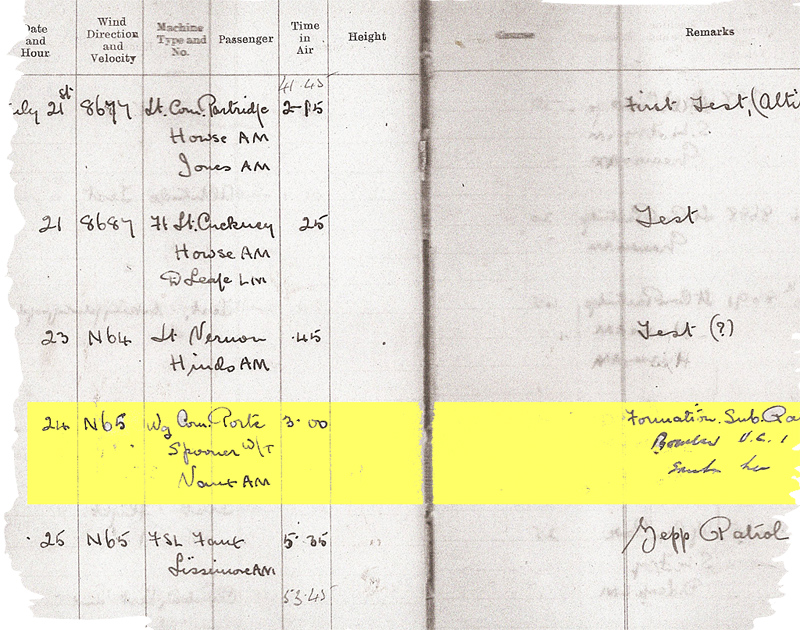 Date and Hour Wind Direction and Velocity Machine Type and No. Passenger Time in Air Height Course Remarks
41.45
ily 21st 8677 Lt. Com. Partridge 2-15 First Test, (Alti
Howse AM
Jones AM
21 8687 Ft Lt. Cuckney 25 Test
Howse AM
Leafe LM
23 N64 Lt Vernon .45 Test (?)
Hinds AM
24 N65 Wg Com. Porte 3.00 Formation. Sub. Pa
Spooner W/T Bombed U.C. 1
AM
25 N65 FSL 5.35 Zepp Patrol
Lissimore AM
53.45